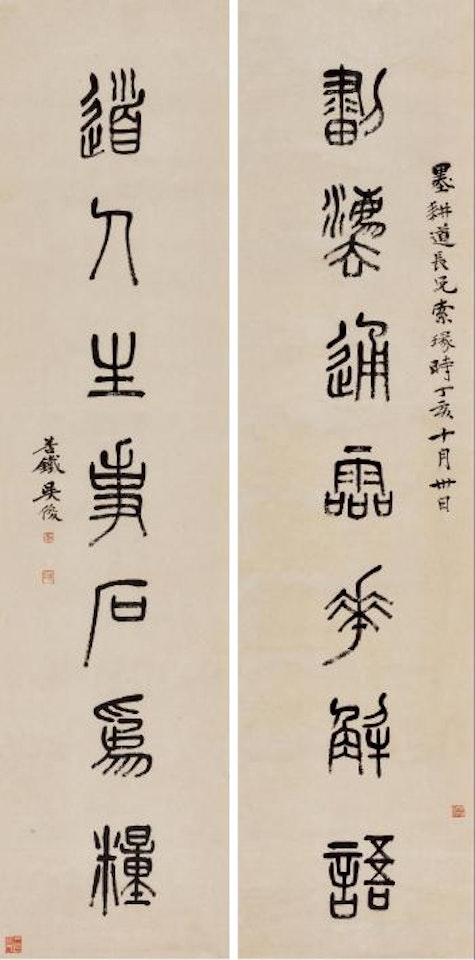 墨耕道長兄索瑑時丁亥十月卅日
劃灋通靈華解語
道人生事石為糧
苦鐵吳俊